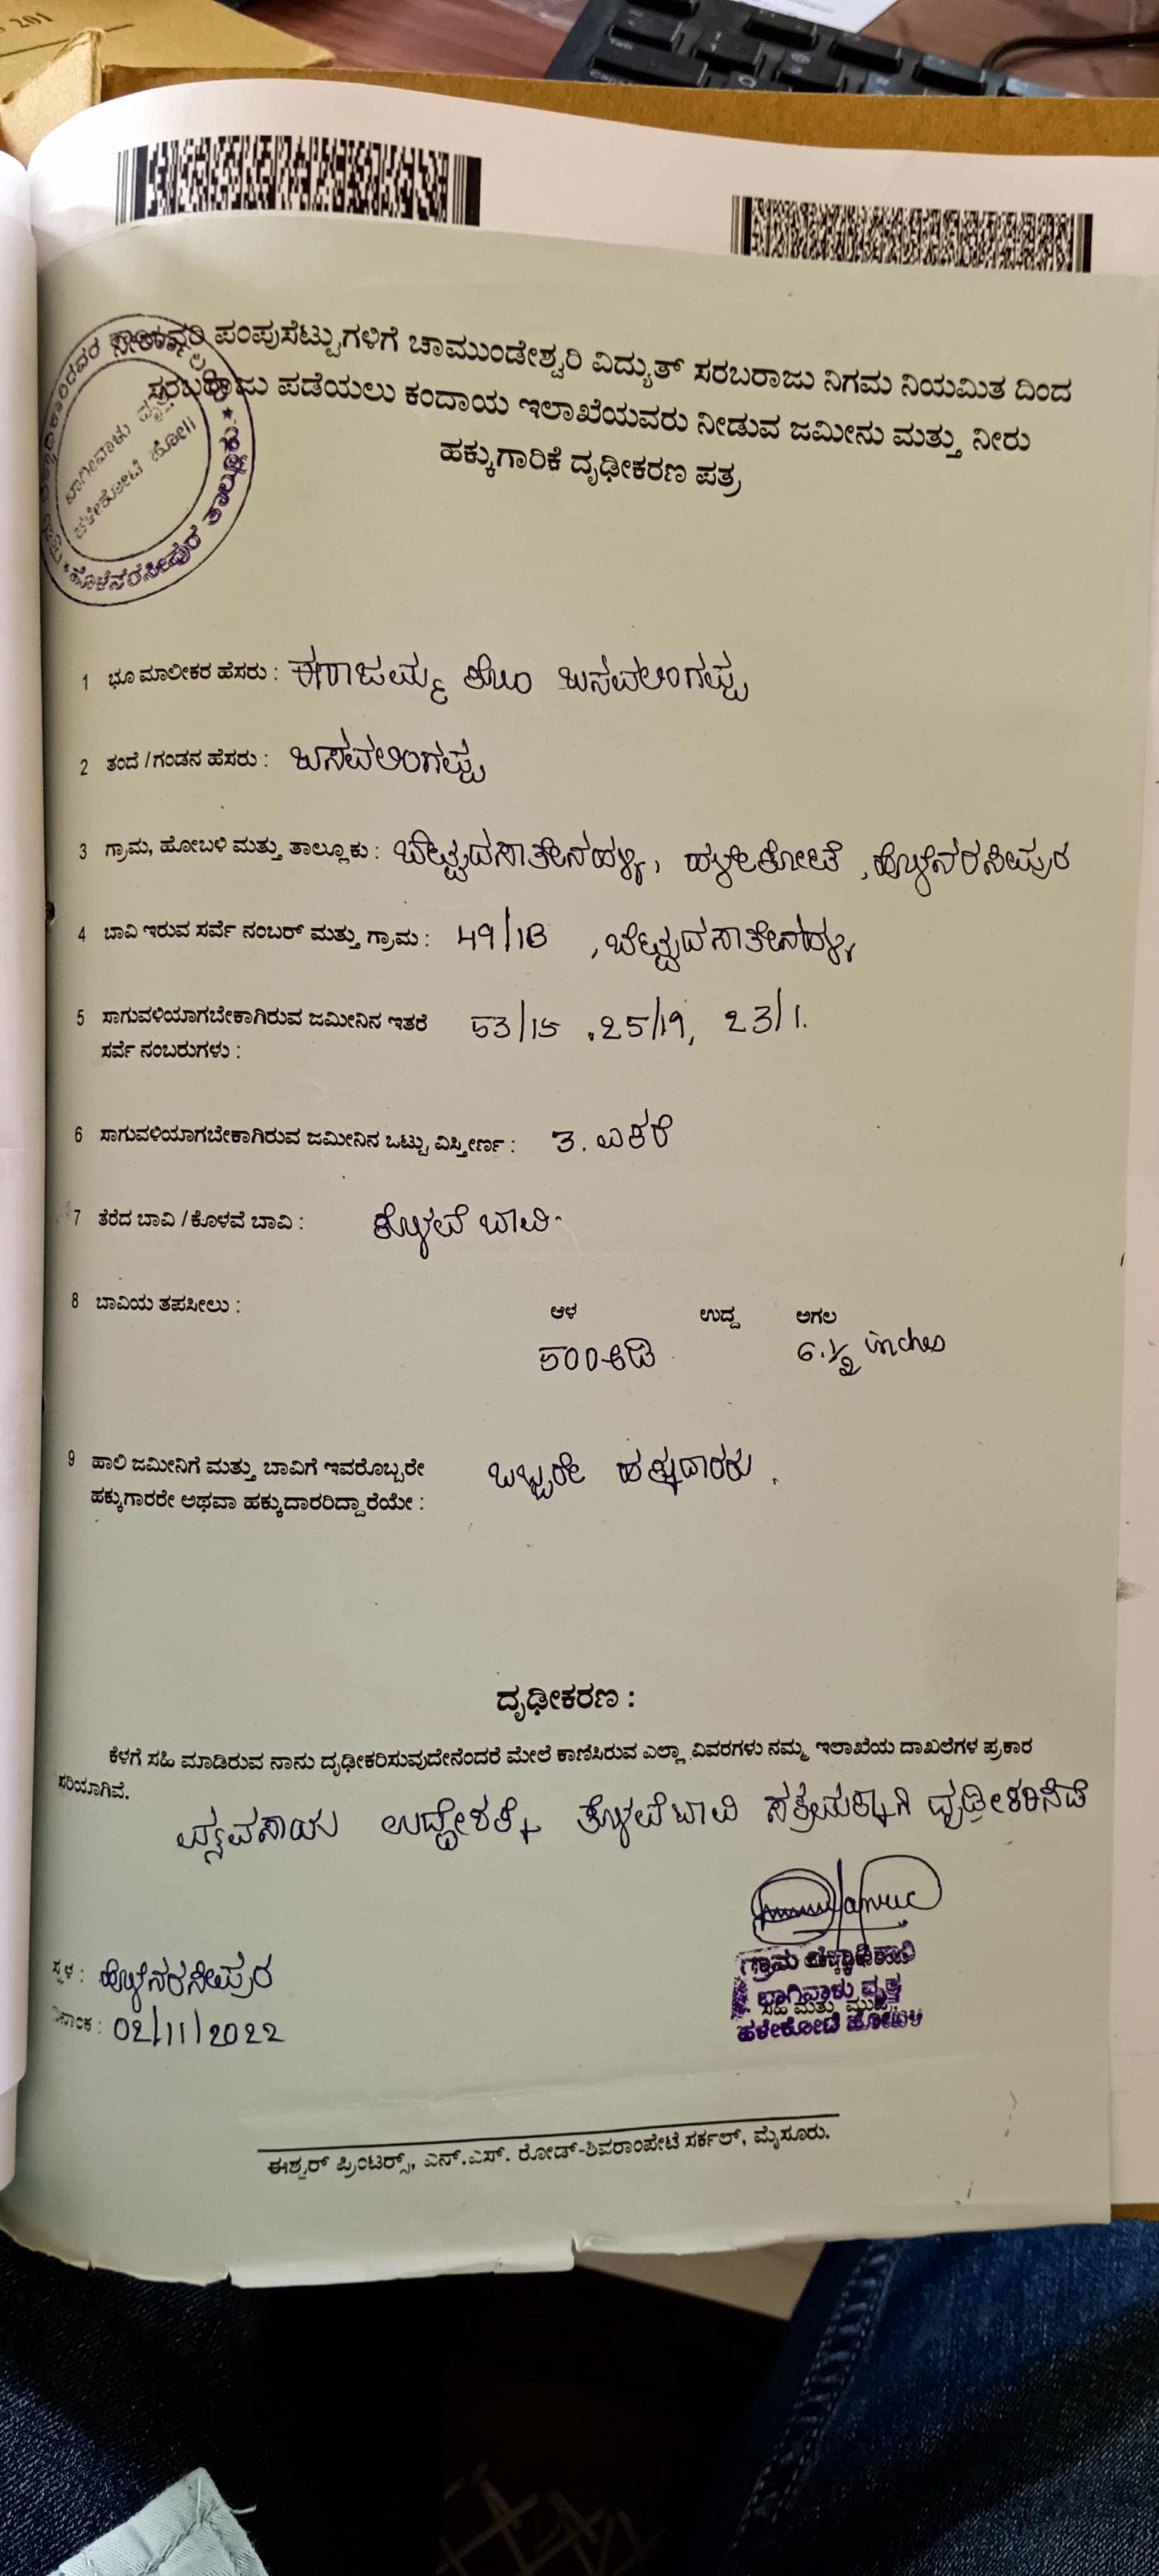 201
ನೀರಾವರಿ ಪಂಪುಸೆಟ್ಟುಗಳಿಗೆ ಚಾಮುಂಡೇಶ್ವರಿ ವಿದ್ಯುತ್ ಸರಬರಾಜು ನಿಗಮ ನಿಯಮಿತ ದಿಂದ
ಸರಬರಾಜು ಪಡೆಯಲು ಕಂದಾಯ ಇಲಾಖೆಯವರು ನೀಡುವ ಜಮೀನು ಮತ್ತು ನೀರು
ಹಕ್ಕುಗಾರಿಕೆ ದೃಢೀಕರಣ ಪತ್ರ
ಹೊಳೆನರಸೀಪುರ ತಾಲ್ಲೂಕು
1 ಭೂ ಮಾಲೀಕರ ಹೆಸರು : ಕೋಂ ಬಸವಲಿಂಗಪ್ಪ
2 ತಂದೆ / ಗಂಡನ ಹೆಸರು : ಬಸವಲಿಂಗಪ್ಪ
3 ಗ್ರಾಮ, ಹೋಬಳಿ ಮತ್ತು ತಾಲ್ಲೂಕು : ಬೆಟ್ಟದಸಾತೇನಹಳ್ಳಿ, ಹಳೇಕೋಟೆ, ಹೊಳೆನರಸೀಪುರ
4 ಬಾವಿ ಇರುವ ಸರ್ವೆ ನಂಬರ್ ಮತ್ತು ಗ್ರಾಮ : 49/1B , ಬೆಟ್ಟದಸಾತೇನಹಳ್ಳಿ
5 ಸಾಗುವಳಿಯಾಗಬೇಕಾಗಿರುವ ಜಮೀನಿನ ಇತರೆ 53/15 , 25/19, 23/1.
ಸರ್ವೆ ನಂಬರುಗಳು :
6 ಸಾಗುವಳಿಯಾಗಬೇಕಾಗಿರುವ ಜಮೀನಿನ ಒಟ್ಟು ವಿಸ್ತೀರ್ಣ : 3. ಎಕರೆ
7 ತೆರೆದ ಬಾವಿ / ಕೊಳವೆ ಬಾವಿ : ಕೊಳವೆ ಬಾವಿ
8 ಬಾವಿಯ ತಪಸೀಲು : ಆಳ ಉದ್ದ ಅಗಲ
500 ಅಡಿ 6.½ inches
9 ಹಾಲಿ ಜಮೀನಿಗೆ ಮತ್ತು ಬಾವಿಗೆ ಇವರೊಬ್ಬರೇ ಒಬ್ಬರೇ ಹಕ್ಕುದಾರರು .
ಹಕ್ಕುಗಾರರೇ ಅಥವಾ ಹಕ್ಕುದಾರರಿದ್ದಾರೆಯೇ :
ದೃಢೀಕರಣ :
ಕೆಳಗೆ ಸಹಿ ಮಾಡಿರುವ ನಾನು ದೃಢೀಕರಿಸುವುದೇನೆಂದರೆ ಮೇಲೆ ಕಾಣಿಸಿರುವ ಎಲ್ಲಾ ವಿವರಗಳು ನಮ್ಮ ಇಲಾಖೆಯ ದಾಖಲೆಗಳ ಪ್ರಕಾರ
ಸರಿಯಾಗಿವೆ.
ವ್ಯವಸಾಯ ಉದ್ದೇಶಕ್ಕೆ ಕೊಳವೆ ಬಾವಿ ಸಕ್ರಮಕ್ಕಾಗಿ ದೃಢೀಕರಿಸಿದೆ
ಗ್ರಾಮ ಲೆಕ್ಕಾಧಿಕಾರಿ
ಬಾಗಿವಾಳು ವೃತ್ತ
ಸಹಿ ಮತ್ತು ಮುದ್ರೆ
ಹಳೇಕೋಟೆ ಹೋಬಳಿ
ಸ್ಥಳ : ಹೊಳೆನರಸೀಪುರ
ದಿನಾಂಕ : 02/11/2022
ಈಶ್ವರ್ ಪ್ರಿಂಟರ್ಸ್, ಎನ್.ಎಸ್. ರೋಡ್-ಶಿವರಾಂಪೇಟೆ ಸರ್ಕಲ್, ಮೈಸೂರು.